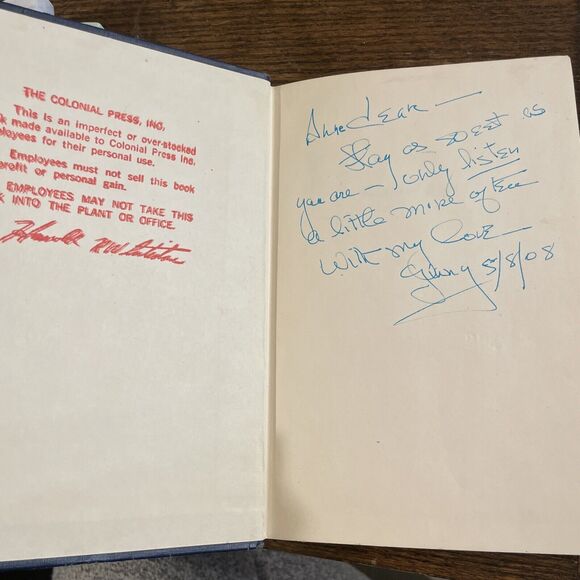 THE COLONIAL PRESS, INC.
This is an imperfect or over-stocked
k made available to Colonial Press Inc.
ployees for their personal use.
Employees must not sell this book
profit or personal gain.
EMPLOYEES MAY NOT TAKE THIS
K INTO THE PLANT OR OFFICE.
Anne dear —
Stay as sweet as
you are — only listen
a little more often
With my love
5/8/08